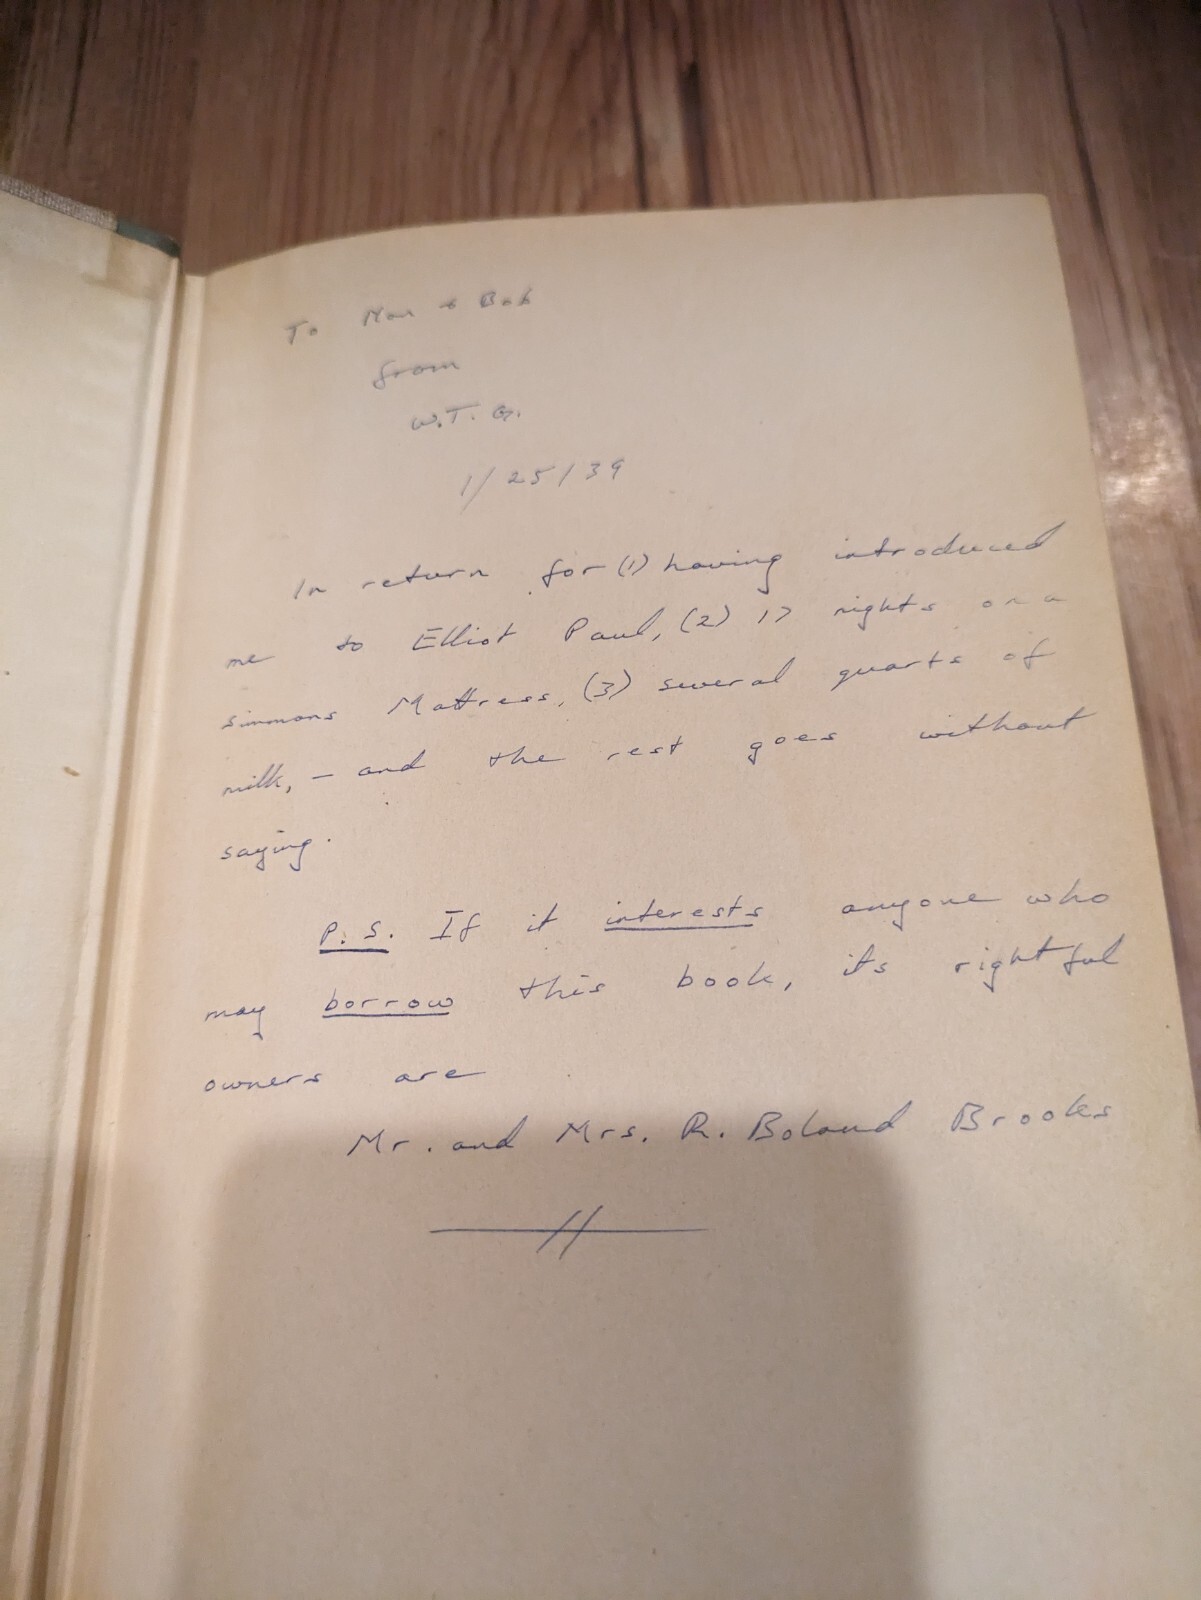 To Nan & Bob
from
W.T. G.
1/25/39
In return for (1) having introduced
me to Elliot Paul, (2) 17 nights on a
simmons Mattress, (3) several quarts of
milk, – and the rest goes without
saying.
P.S. If it interests anyone who
may borrow this book, its rightful
owners are
Mr. and Mrs. R. Boland Brooks